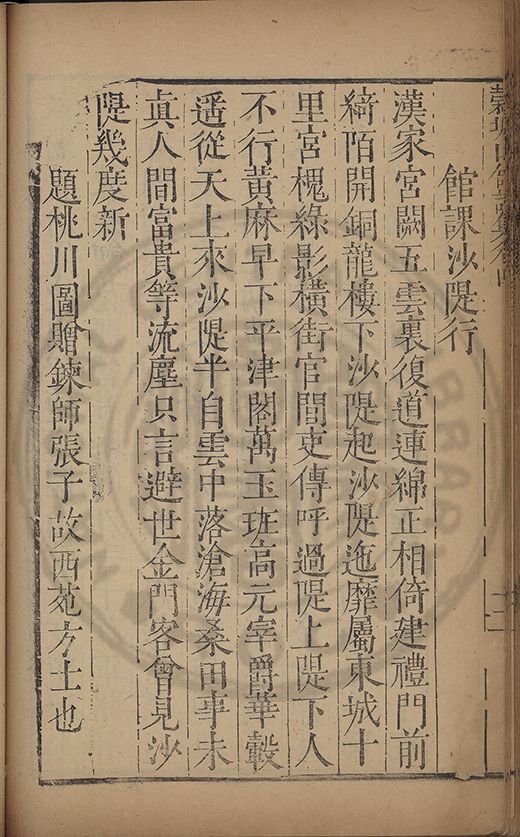 館課沙隄行
漢家宮闕五雲裏復道連綿正相倚建禮門前
綺陌開銅龍樓下沙隄起沙隄迤靡屬東城十
里宮槐綠影橫街官間吏傳呼過隄上隄下人
不行黃麻早下平津閣萬玉班高元宰爵華轂
遥從天上來沙隄半自雲中落滄海桑田事未
眞人間富貴等流塵只言避世金門客曾見沙
隄幾度新
題桃川圖贈鍊師張子故西苑方士也